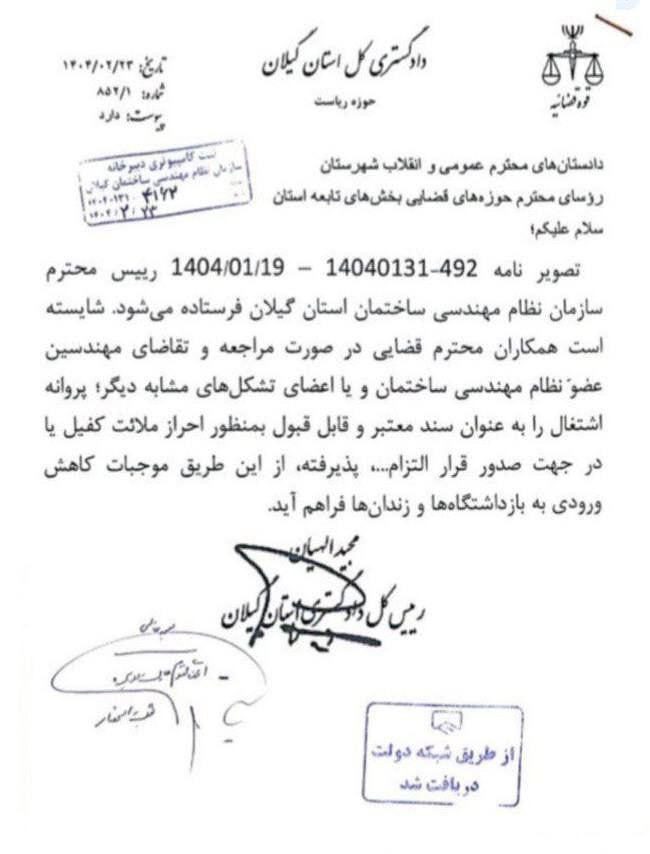 قوه قضائیه
دادگستری کل استان گیلان
حوزه ریاست
تاریخ: ۱۴۰۴/۰۲/۲۳
شماره: ۸۵۲/۱
پیوست: دارد
ثبت کامپیوتری دبیرخانه
سازمان نظام مهندسی ساختمان گیلان
۱۴۰۴۰۱۳۱- ۴۱۶۲
۱۴۰۴/۲/۲۳
دادستان‌های محترم عمومی و انقلاب شهرستان
رؤسای محترم حوزه‌های قضایی بخش‌های تابعه استان
سلام علیکم؛
تصویر نامه 492-14040131 – 1404/01/19 رییس محترم
سازمان نظام مهندسی ساختمان استان گیلان فرستاده می‌شود. شایسته
است همکاران محترم قضایی در صورت مراجعه و تقاضای مهندسین
عضو نظام مهندسی ساختمان و یا اعضای تشکل‌های مشابه دیگر؛ پروانه
اشتغال را به عنوان سند معتبر و قابل قبول بمنظور احراز ملائت کفیل یا
در جهت صدور قرار التزام...، پذیرفته، از این طریق موجبات کاهش
ورودی به بازداشتگاه‌ها و زندان‌ها فراهم آید.
مجید الهیان
رییس کل دادگستری استان گیلان
از طریق شبکه دولت
دریافت شد